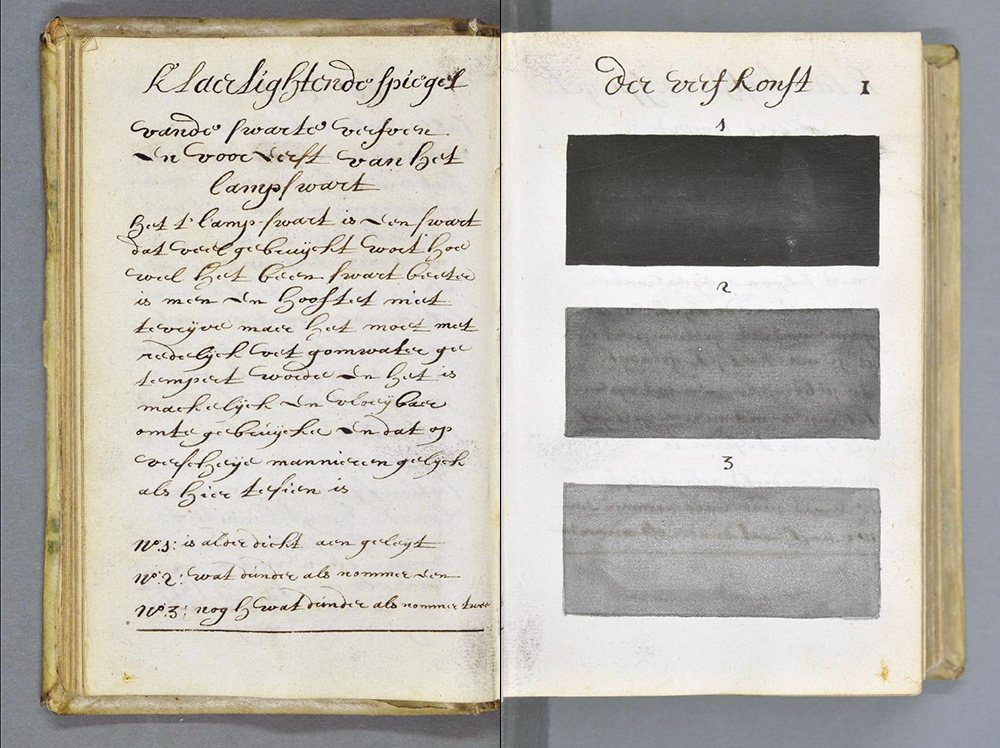 Klaerlightende spiegel
vande swarte verfven
en voor eerst van het
lampswart
het t' lamp-swart is een swart
dat veel gebruijckt wort hoe
wel het been swart beeter
is men en hooft et niet
te vrijve maer het moet met
redelijck vet gomwater ge
tempert worden en het is
mackelijck en vloeijbaer
omte gebruijcke en dat op
verscheije mannieren gelijck
als hier tesien is
No.1: is alder dickt aen geleijt
No.2: wat dunder als nommer een
No.3: nogh wat dunder als nommer twee
der verf konst 1
1
2
3